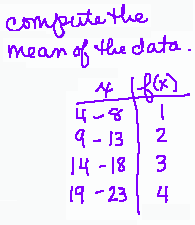 compute the
mean of the data.
x | f(x)
4 - 8 | 1
9 - 13 | 2
14 - 18 | 3
19 - 23 | 4